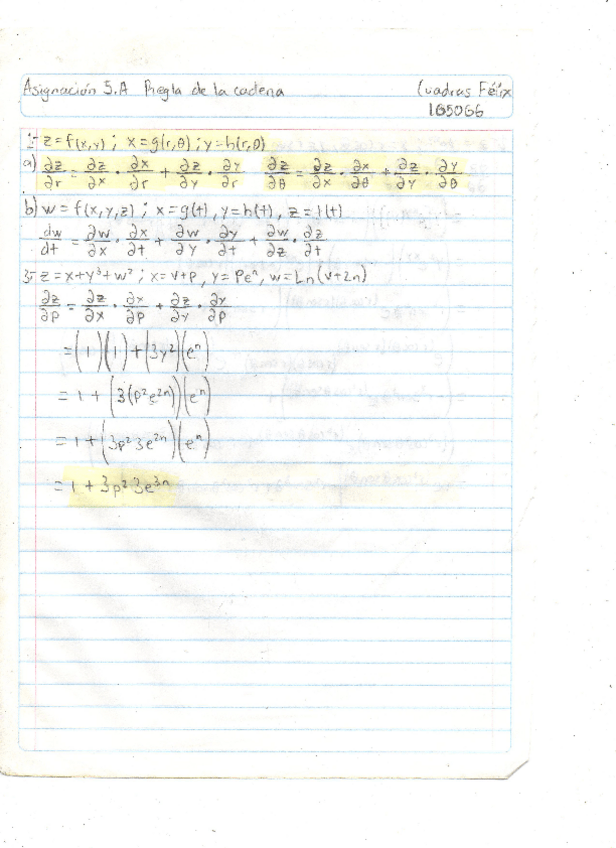 Asignación 5.A Regla de la cadena
Cuadras Félix
165066
1- z=f(x,y); x=g(r,θ); y=h(r,θ)
a) ∂z/∂r = ∂z/∂x · ∂x/∂r + ∂z/∂y · ∂y/∂r   ∂z/∂θ = ∂z/∂x · ∂x/∂θ + ∂z/∂y · ∂y/∂θ
b) w=f(x,y,z); x=g(t), y=h(t), z=l(t)
dw/dt = ∂w/∂x · ∂x/∂t + ∂w/∂y · ∂y/∂t + ∂w/∂z · ∂z/∂t
3- z=x+y³+w²; x=v+p, y=Peⁿ, w=Ln(v+2n)
∂z/∂p = ∂z/∂x · ∂x/∂p + ∂z/∂y · ∂y/∂p
=(1)(1)+(3y²)(eⁿ)
=1+(3(p²e²ⁿ))(eⁿ)
=1+(3p²3e²ⁿ)(eⁿ)
=1+3p²3e³ⁿ